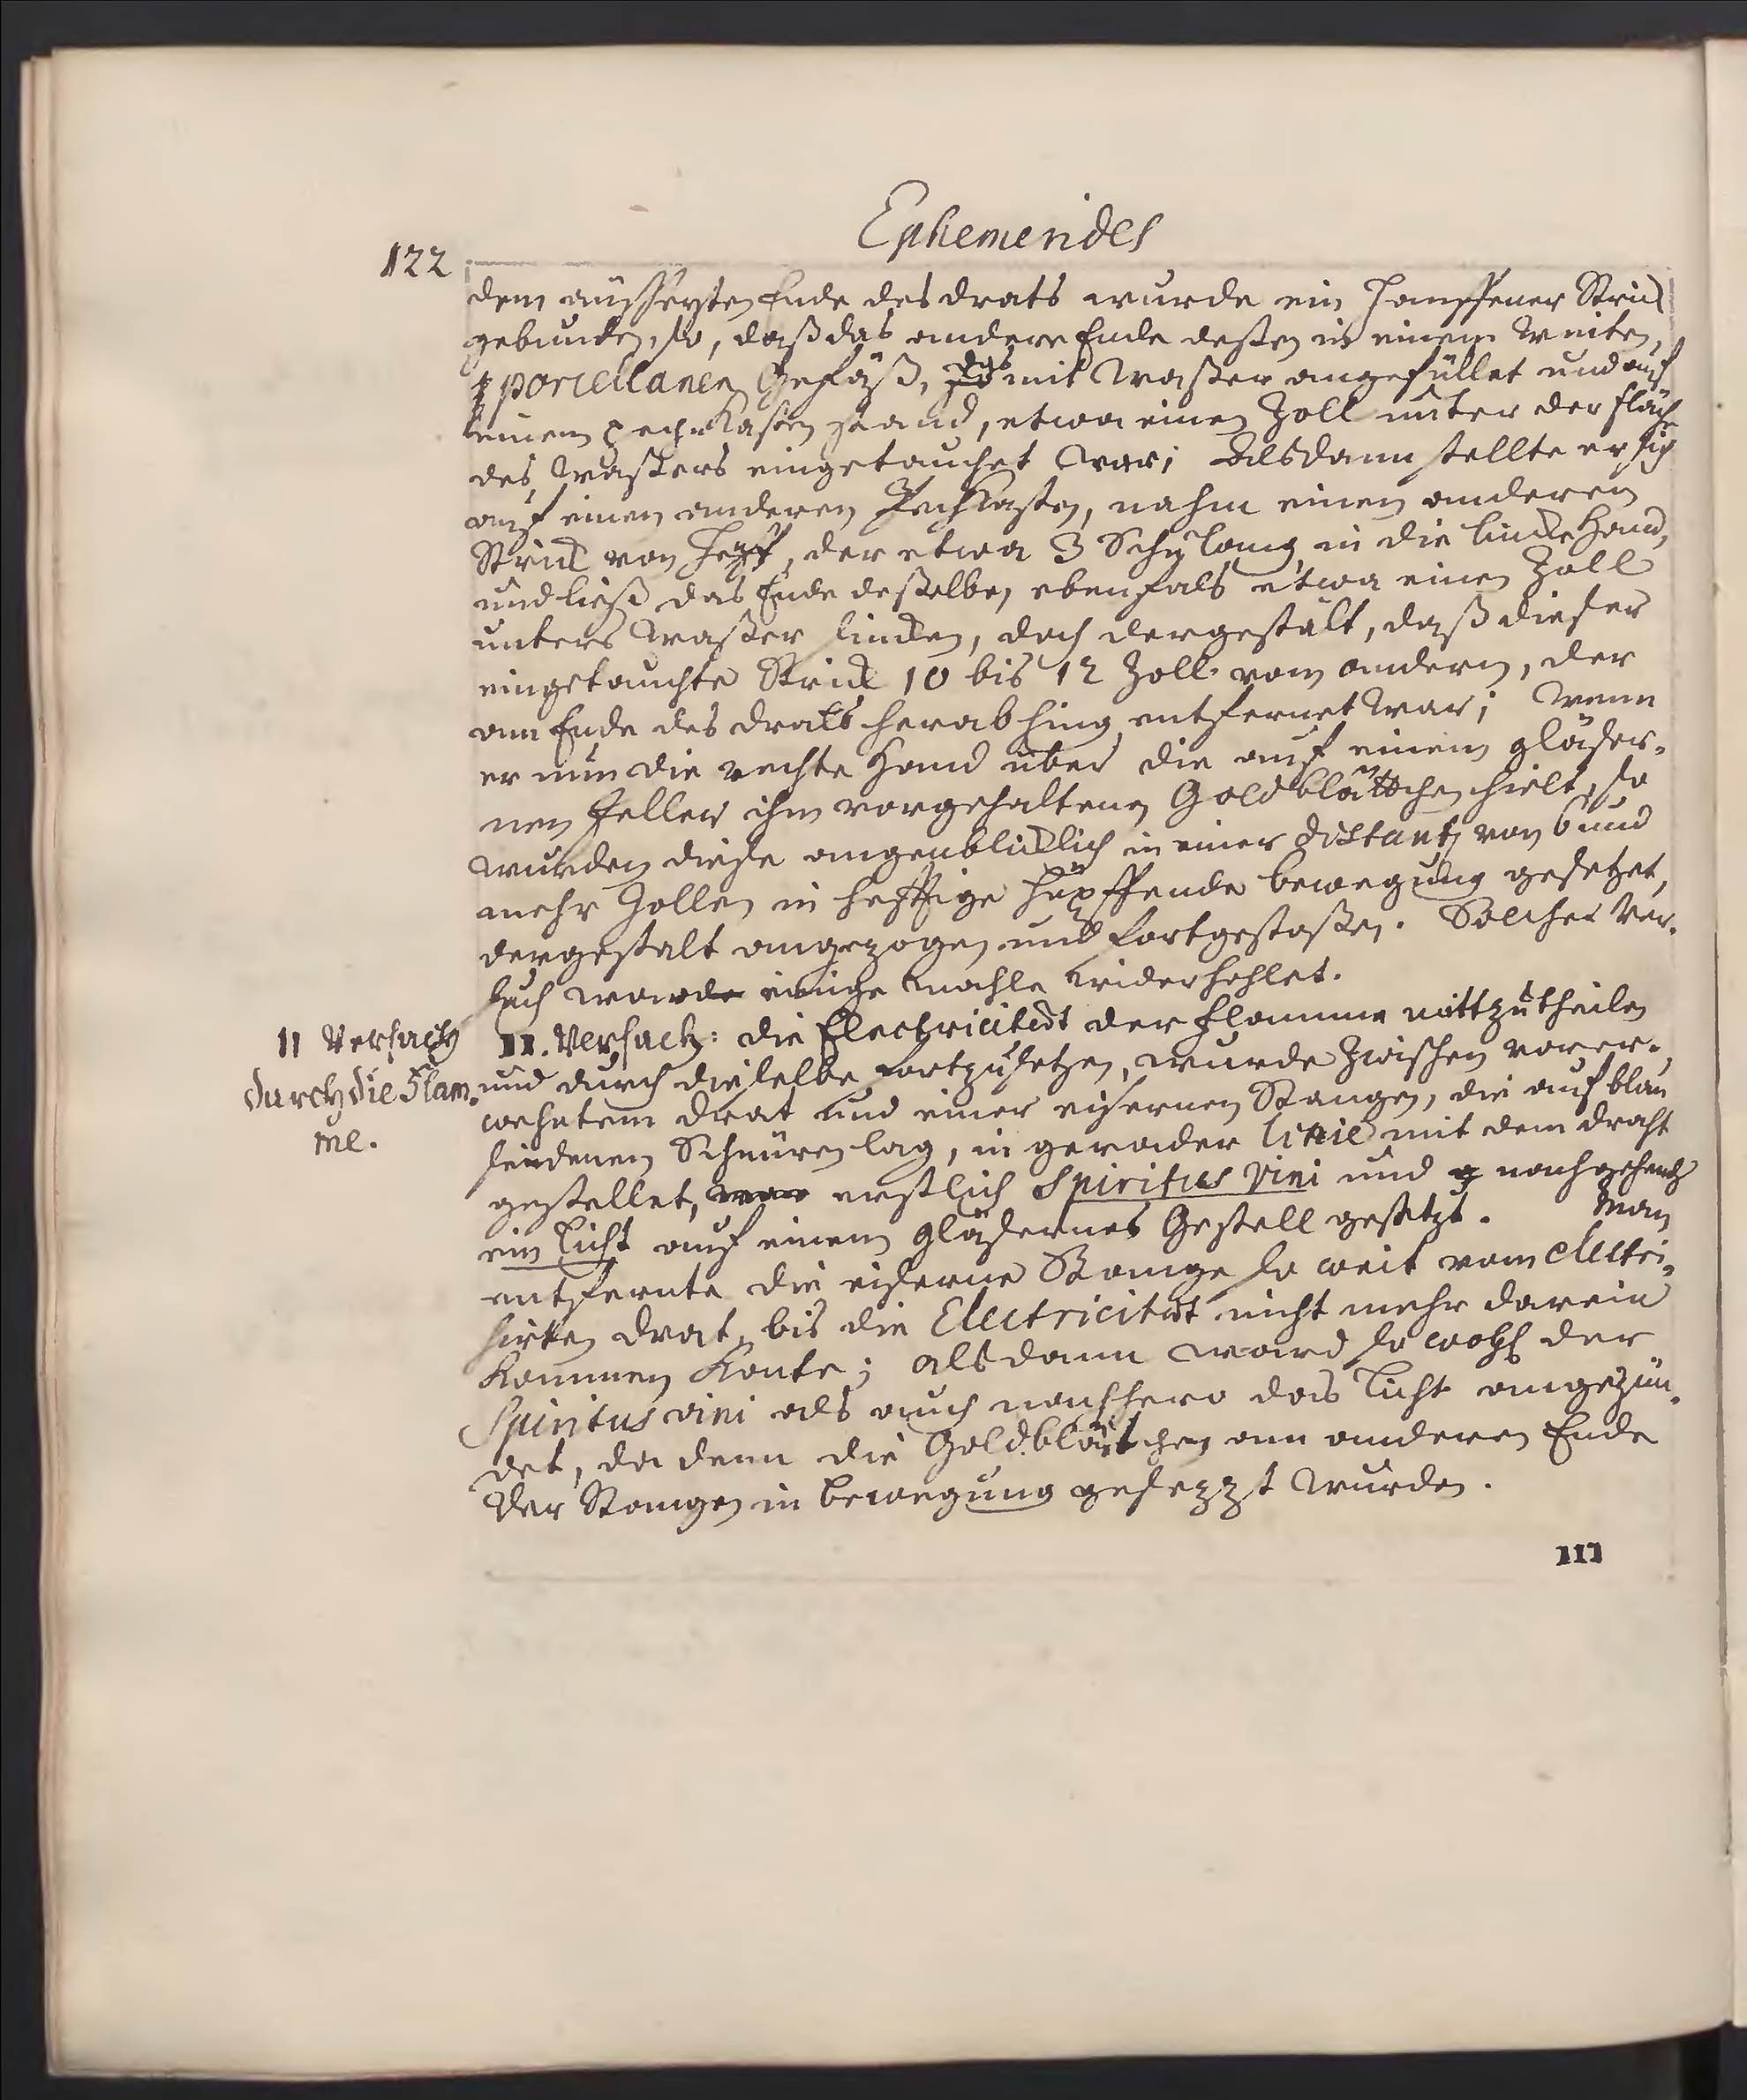 Ephemerides
122
dem äußersten Ende des drats wurde ein Hanffener Strick
gebunden, so, daß das andere Ende deßen in einem weiten,
porcellanen Gefäß, das mit Waßer angefüllet und auf
einem pech-Kasten stand, etwa einen Zoll unter der fläche
des Waßers eingetauchet war; Alsdann stellte er sich
auf einen anderen Pechkasten, nahm einen anderen
Strick von Hanff, der etwa 3 Schu lang in die lincke Hand,
und ließ das Ende deßelben ebenfals etwa einen Zoll
unters Waßer sincken, doch dergestalt, daß dieser
eingetauchte Strick 10 bis 12 Zoll vom andern, der
am Ende des drats herabhing, entfernet war; Wenn
er nun die rechte Hand über die auf einem gläser-
nen Teller ihm vorgehaltenen Goldblättchen hielt, so
wurden diese augenblicklich in einer distantz von 6 und
mehr Zollen in hefftige hüpffende bewegung gesetzet,
dergestalt angezogen und fortgestoßen. Solcher Ver-
such wurde einige mahle widerhohlet.
11 Versuch
durch die Flam-
me.
II. Versuch: die Electricitæt der Flamme mittzutheilen
und durch dieselbe fortzusetzen, wurde zwischen vorer-
wehntem drat und einer eisernen Stangen, die auf blau
seidenen Schnüren lag, in gerader linie mit dem draht
gestellet, erstlich Spiritus Vini und nachgehends
ein Licht auf einem gläsernes Gestell gesetzt. Man
entfernte die eiserne Stange so weit vom electri-
sirten drat, bis die Electricitæt nicht mehr darein
kommen konte; alsdann ward so wohl der
Spiritus vini als auch nachhero das Licht angezün-
det, da denn die Goldblättchen am anderen Ende
der Stangen in bewegung gesezzt wurden.
III